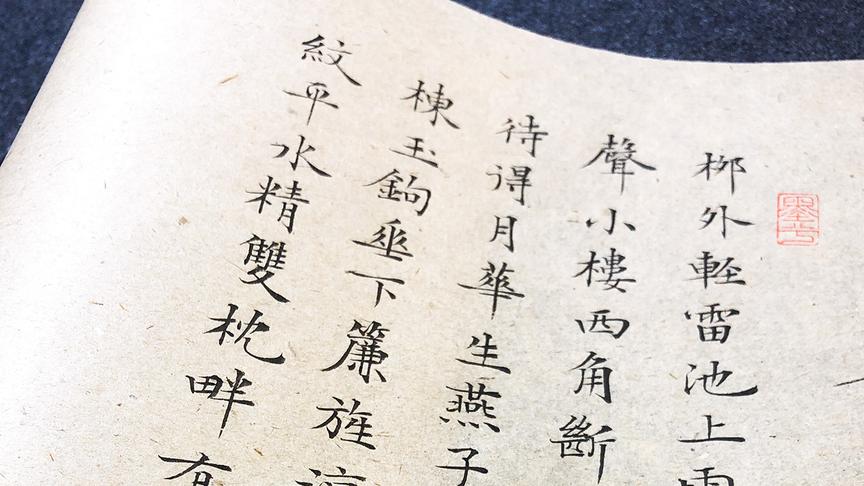 栁外軽雷池上雨
聲小樓西角斷
待得月華生燕子
棟玉鉤垂下簾旌涼
紋平水精雙枕畔有